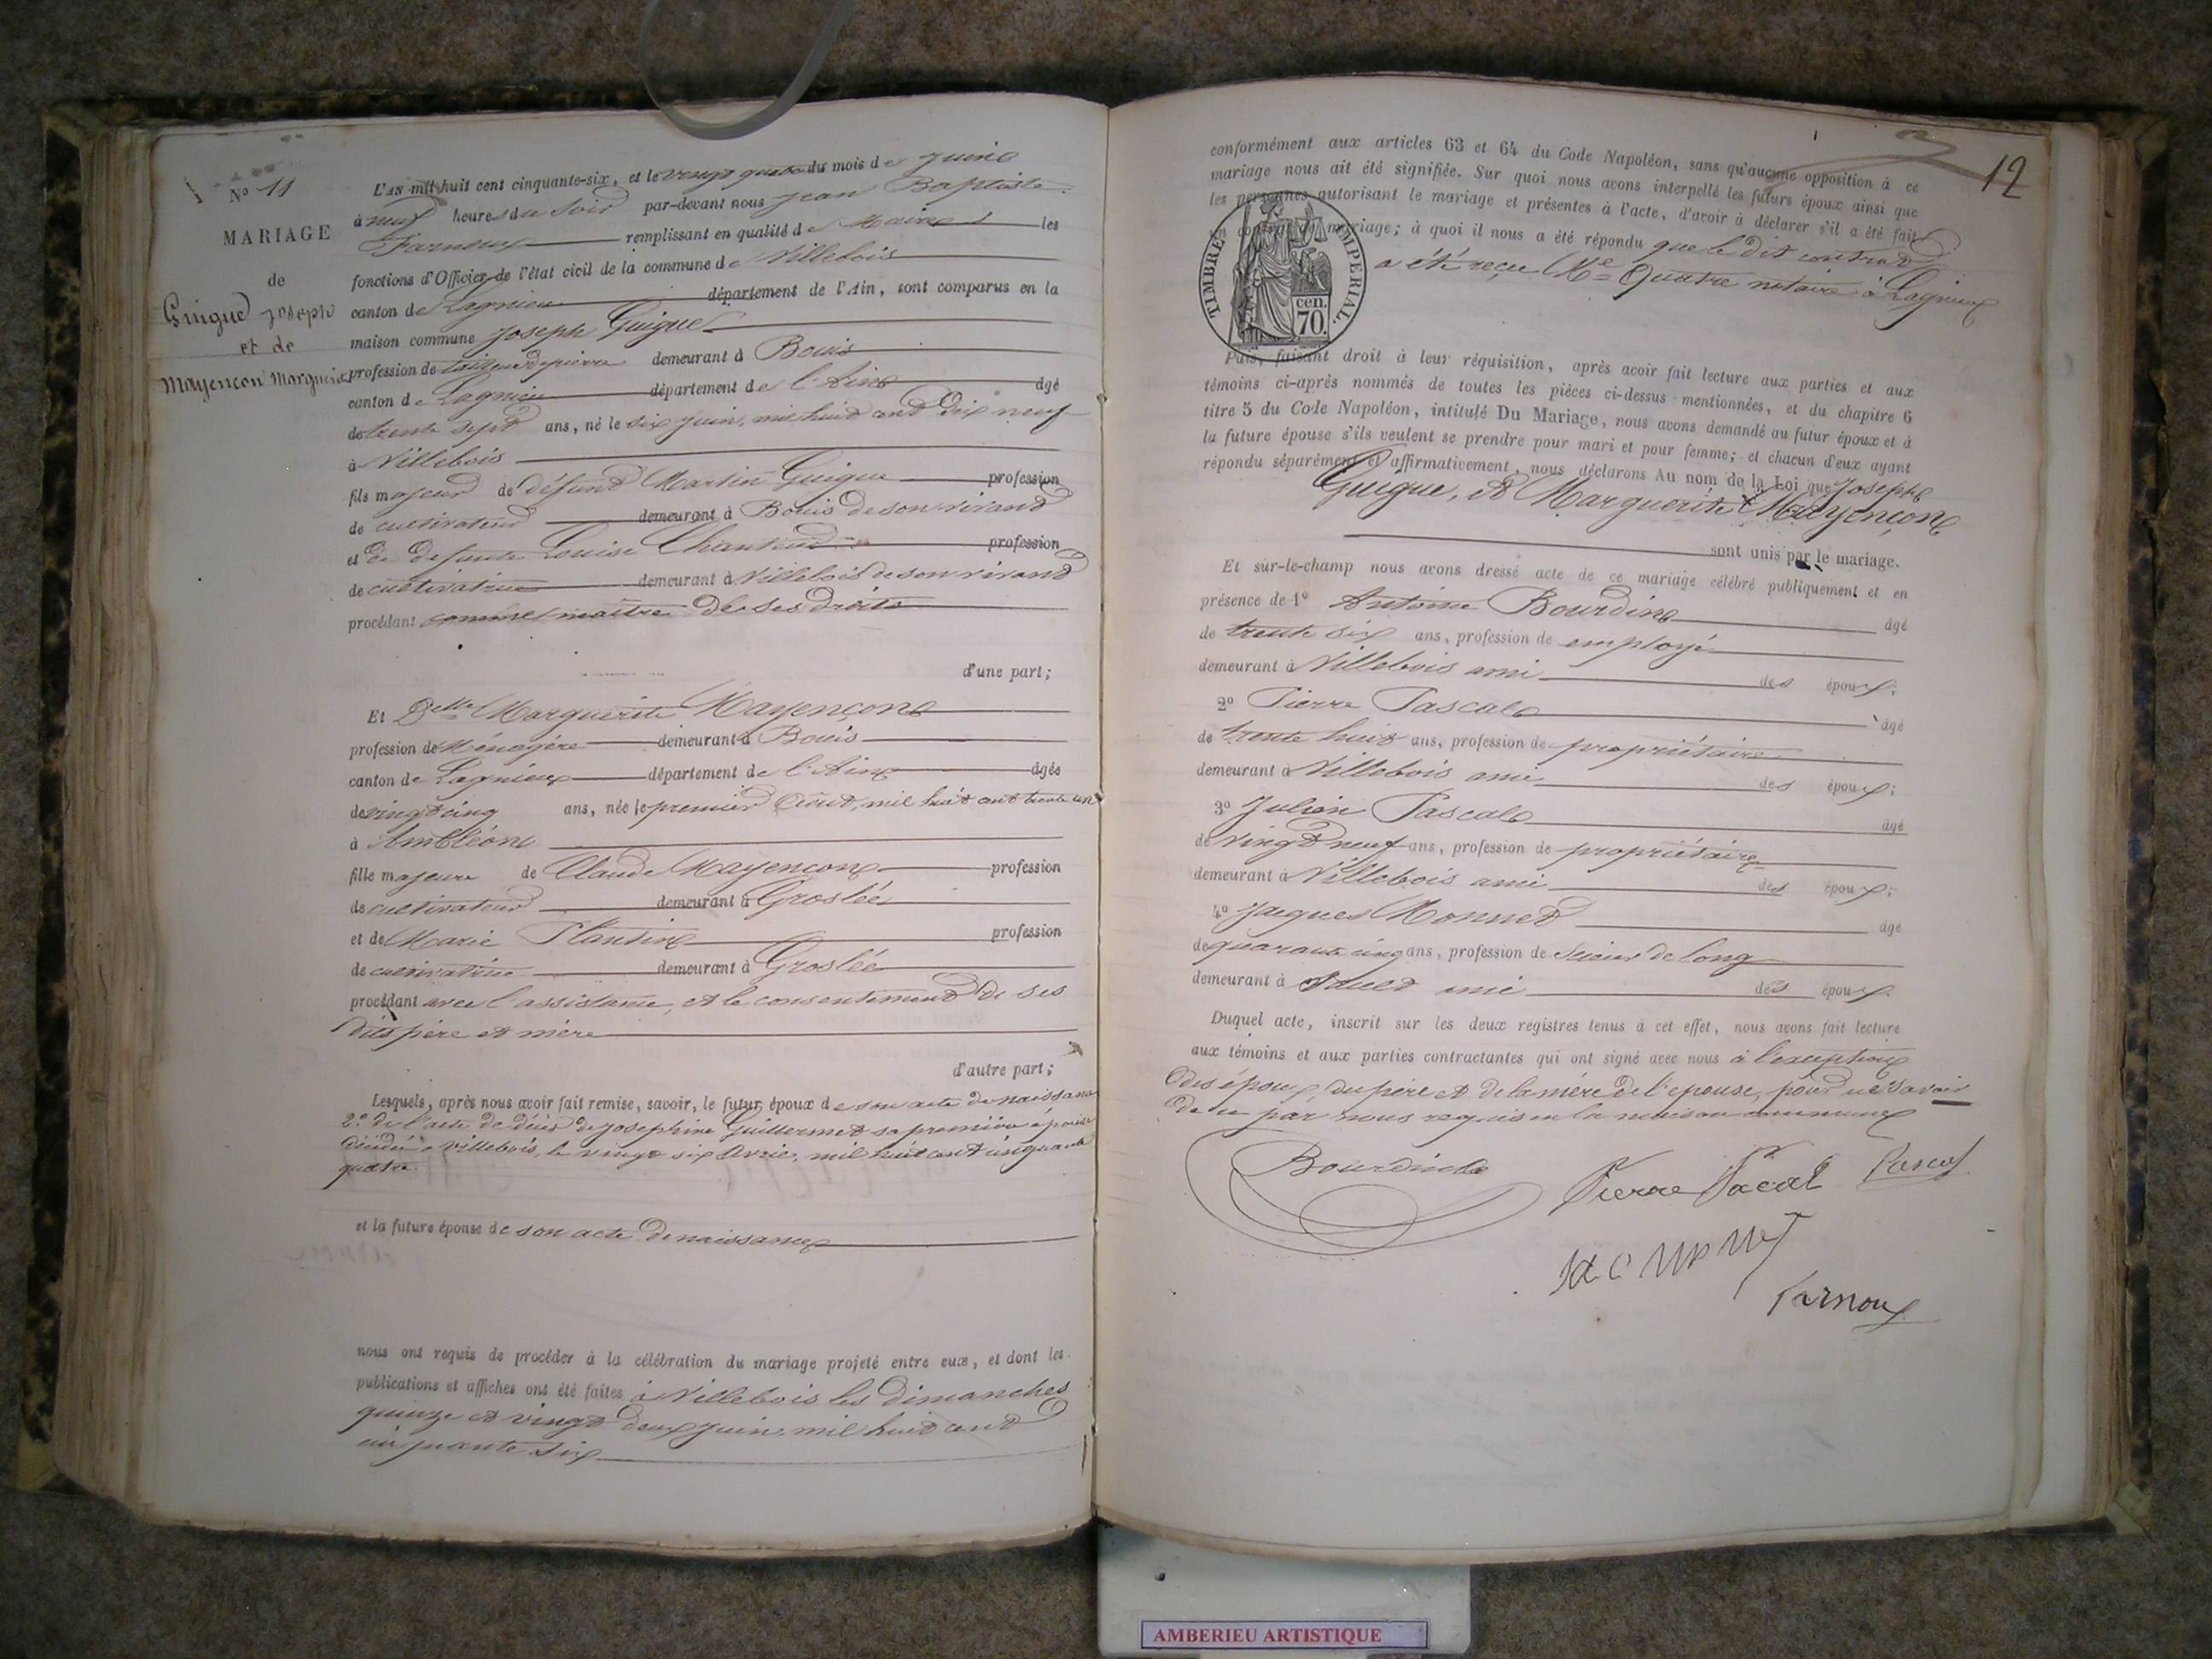 N° 11
MARIAGE
de
Guigue Joseph
et de
Mayencon Marguerite
L'AN mil huit cent cinquante-six, et le vingt quatre du mois de juin
à neuf heures du soir par-devant nous Jean Baptiste
Farnoux remplissant en qualité de Maire les
fonctions d'Officier de l'état civil de la commune de Villebois
canton de Lagnieu département de l'Ain, sont comparus en la
maison commune Joseph Guigue
profession de tailleur de pierre demeurant à Bouis
canton de Lagnieu département de l'Ain âgé
de trente sept ans, né le six juin, mil huit cent dix neuf
à Villebois
fils majeur de défunt Martin Guigue profession
de cultivateur demeurant à Bouis de son vivant
et de défunte Louise profession
de cultivatrice demeurant à Villebois de son vivant
procédant comme maître de ses droits
d'une part;
Et Delle Marguerite Mayençon
profession de Ménagère demeurant à Bouis
canton de Lagnieu département de l'Ain âgée
de vingt cinq ans, née le premier Août, mil huit cent trente un
à Ambléon
fille majeure de Claude Mayençon profession
de cultivateur demeurant à Groslée
et de Marie Plantin profession
de cultivatrice demeurant à Groslée
procédant avec l'assistance, et le consentement de ses
dits père et mère
d'autre part;
Lesquels, après nous avoir fait remise, savoir, le futur époux de son acte de naissance
2° de l'acte de décès de Josephine Guillermet sa première épouse
décédée à Villebois, le vingt six Avril, mil huit cent cinquante
quatre
et la future épouse de son acte de naissance
nous ont requis de procéder à la célébration du mariage projeté entre eux, et dont les
publications et affiches ont été faites à Villebois les dimanches
quinze et vingt deux juin, mil huit cent
cinquante six
12
conformément aux articles 63 et 64 du Code Napoléon, sans qu'aucune opposition à ce
mariage nous ait été signifiée. Sur quoi nous avons interpellé les futurs époux ainsi que
les personnes autorisant le mariage et présentes à l'acte, d'avoir à déclarer s'il a été fait
un contrat de mariage; à quoi il nous a été répondu que le dit contrat
a été reçu Me Quatre notaire à Lagnieu
TIMBRE IMPERIAL.
70. cen.
Puis, faisant droit à leur réquisition, après avoir fait lecture aux parties et aux
témoins ci-après nommés de toutes les pièces ci-dessus mentionnées, et du chapitre 6
titre 5 du Code Napoléon, intitulé Du Mariage, nous avons demandé au futur époux et à
la future épouse s'ils veulent se prendre pour mari et pour femme; et chacun d'eux ayant
répondu séparément et affirmativement, nous déclarons Au nom de la Loi que Joseph
Guigue, et Marguerite Mayençon
sont unis par le mariage.
Et sur-le-champ nous avons dressé acte de ce mariage célébré publiquement et en
présence de 1° Antoine Bourdin âgé
de trente six ans, profession de employé
demeurant à Villebois ami des époux;
2° Pierre Pascal âgé
de trente huit ans, profession de propriétaire
demeurant à Villebois ami des époux;
3° Julien Pascal âgé
de vingt neuf ans, profession de propriétaire
demeurant à Villebois ami des époux;
4° Jacques Monnet âgé
de quarante cinq ans, profession de Scieur de long
demeurant à Sault ami des époux.
Duquel acte, inscrit sur les deux registres tenus à cet effet, nous avons fait lecture
aux témoins et aux parties contractantes qui ont signé avec nous à l'exception
des époux, du père et de la mère de l'épouse, pour ne savoir
de ce par nous requis en la maison commune
Bourdin Pierre Pacal Pascal
Farnoux
AMBERIEU ARTISTIQUE